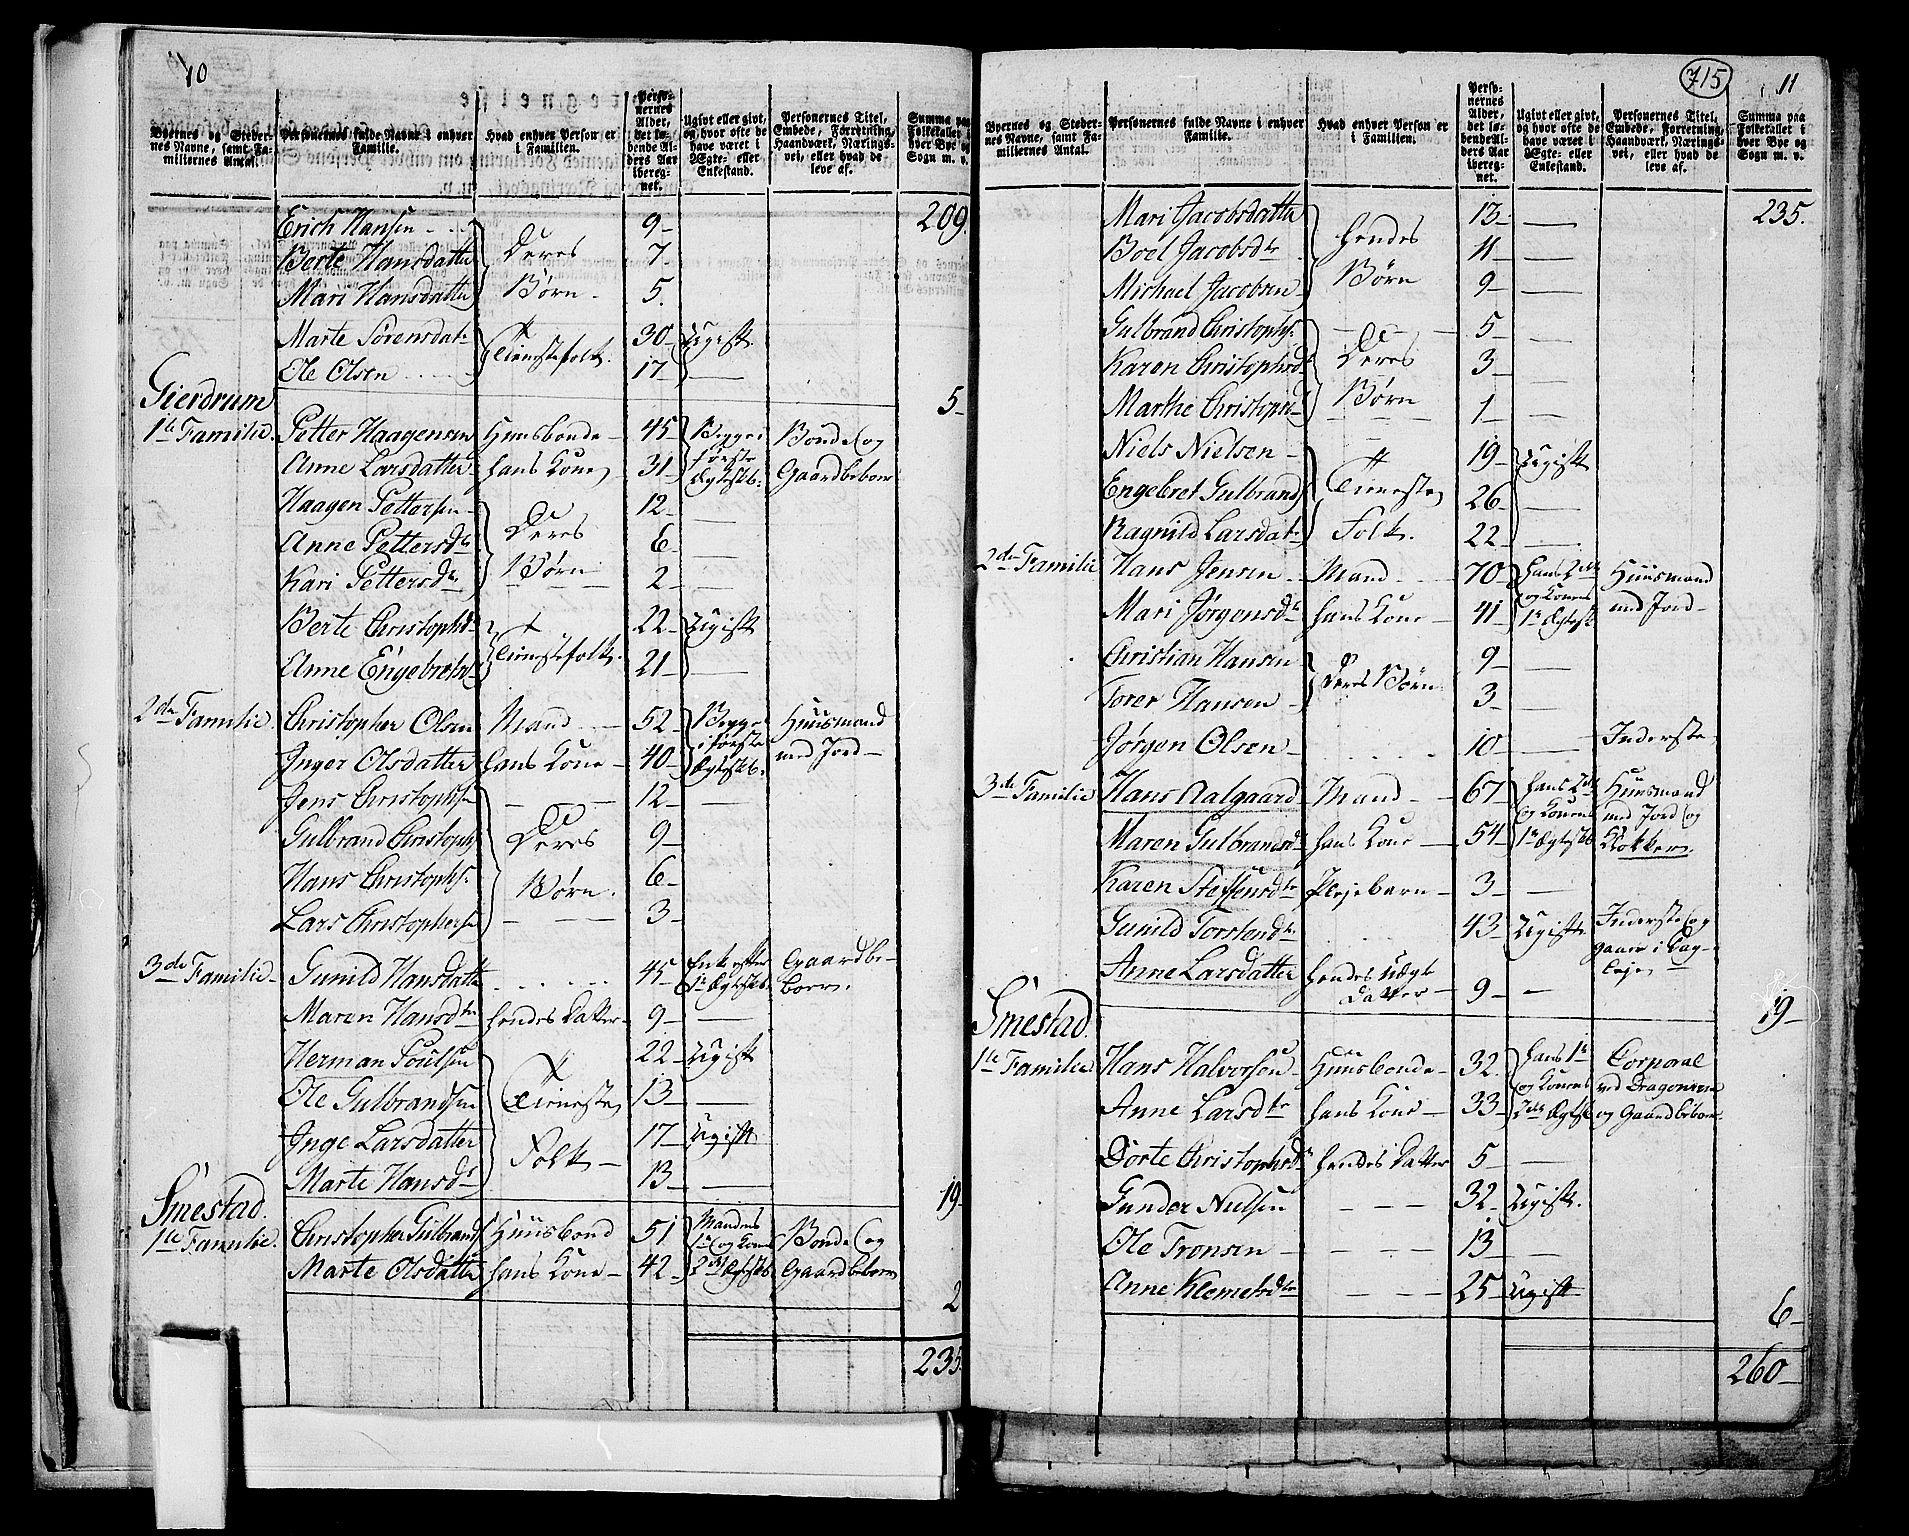 10
Byernes og Stedernes Navne, samt Familiernes Antal.
Personernes fulde Navne i enhver Familie.
Hvad enhver Person er i Familien.
Personernes Alder, det løbende Alders Aar iberegnet.
Ugivt eller givt, og hvor ofte de have været i Ægte- eller Enkestand.
Personernes Titel, Embede, Forretning, Haandværk, Næringsvei, eller hvad de leve af.
Summa paa Folketallet i hver Bye og Sogn m. v.
Erich Hansen 9 209.
Berte Hansdatter Deres 7
Mari Hansdatter Børn 5.
Marte Sørensdatr Tienestefolk. 30 Ugift
Ole Olsen 17
Gierdrum 5
1te Familie. Petter Haagensen Huusbonde 45 Begge i Bonde og
Anne Larsdatter hans Kone 31 første Ægtesk: Gaardbeboer
Haagen Pettersen 12
Anne Pettersdtr Deres 6
Kari Pettersdtr Børn 2
Berte Christophd Tienestefolk. 22 Ugift
Anne Engebretsd 21
2den Familie. Christopher Olsen Mand 52 Begge Huusmand
Inger Olsdatter hans Kone 40 i første Ægtesk: med Jord
Jens Christophs: 12
Gulbrand Christophs: Deres 9
Hans Christophs: Børn. 6
Lars Christophersen 3
3de Familie Gunild Hansdatter 45 Enke efter Gaardbe-
1te Ægtesk: boer.
Maren Hansdtr hendes Datter 9
Herman Poulsen 22 Ugift
Ole Gulbrandsen Tieneste 13
Inge Larsdatter 17 Ugift
Marte Hansdr Folk 13
Smestad. 19
1te Familie. Christopher Gulbrands Huusbond 51 Mandens Bonde og
1te og Kones
Marte Olsdatter hans Kone 42 2det Ægtesk: Gaardbeboer
2
235.
715
11
Byernes og Stedernes Navne, samt Familiernes Antal.
Personernes fulde Navne i enhver Familie.
Hvad enhver Person er i Familien.
Personernes Alder, det løbende Alders Aar iberegnet.
Ugivt eller givt, og hvor ofte de have været i Ægte- eller Enkestand.
Personernes Titel, Embede, Forretning, Haandværk, Næringsvei, eller hvad de leve af.
Summa paa Folketallet i hver Bye og Sogn m. v.
Mari Jacobsdatter 13 235.
Boel Jacobsdtr hendes 11
Michael Jacobsen Børn 9
Gulbrand Christophs: 5
Karen Christophsd Deres 3
Marthe Christophd Børn 1
Niels Nielsen 19 Ugift
Engebret Gulbrands Tieneste 26
Ragnild Larsdatr Folk. 22
2den Familie Hans Jensen Mand 70 hans 2det Huusmand
og Konens
Mari Jørgensdtr hans Kone 41 1te Ægtesk: med Jord
Christian Hansen 9
Deres Børn
Torer Hansen 3
Jørgen Olsen 10 Inderste
3de Familie Hans Aalgaard Mand 67 hans 2det Huusmand
og Konens med Jord og
Maren Gulbrandsd hans Kone 54 1te Ægtesk: Klokker.
Karen Steffensdtr Plejebarn 3
Gunild Torstendtr 43 Ugift Inderste og
gaaer i Dag-
Anne Larsdatter hendes Uægte leje
Datter 9
Smestad. 19
1te Familie Hans Halvorsen Huusbonde 32. hans 1te Corporal
og Konens ved Dragonerne
Anne Larsdtr hans Kone 33 2det Ægtesk og Gaardbeboer
Dorte Christophsd hendes Datter 5
Gunder Nielsen 32 Ugift.
Ole Tronsen 13
Anne Klemetsdtr 25 Ugift
6
260